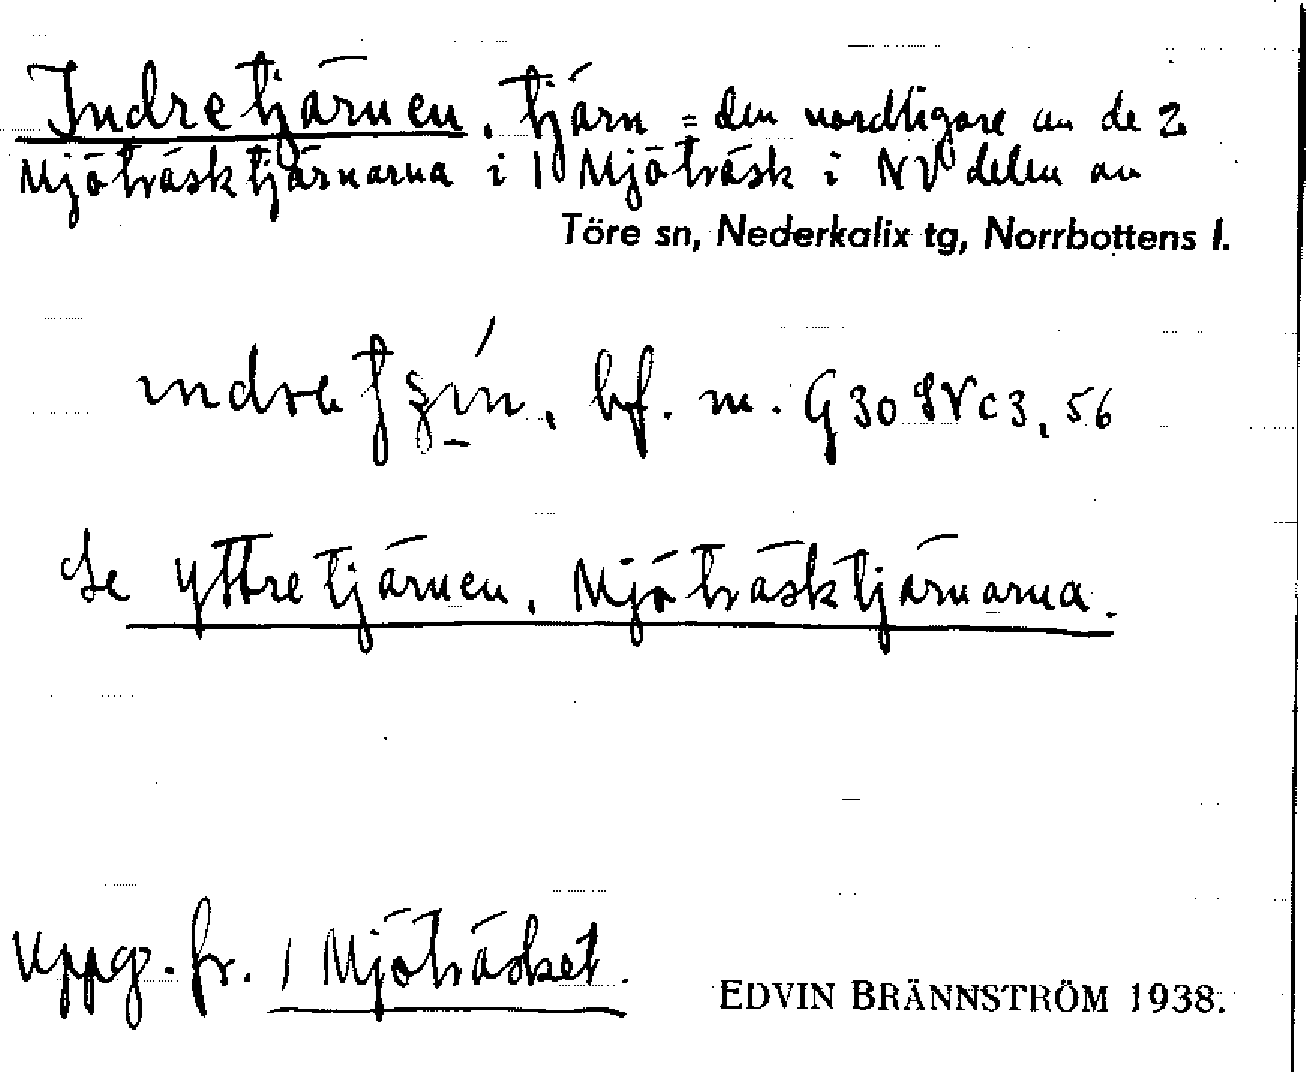 Indretjärnen, tjärn = den nordligare av de 2
Mjöträsktjärnarna i 1 Mjöträsk i NV delen av
Töre sn, Nederkalix tg, Norrbottens l.
bf. m. G 30 SV c 3, 56
Se Yttretjärnen, Mjöträsktjärnarna.
Uppg. fr. 1 Mjöträsket.
EDVIN BRÄNNSTRÖM 1938.